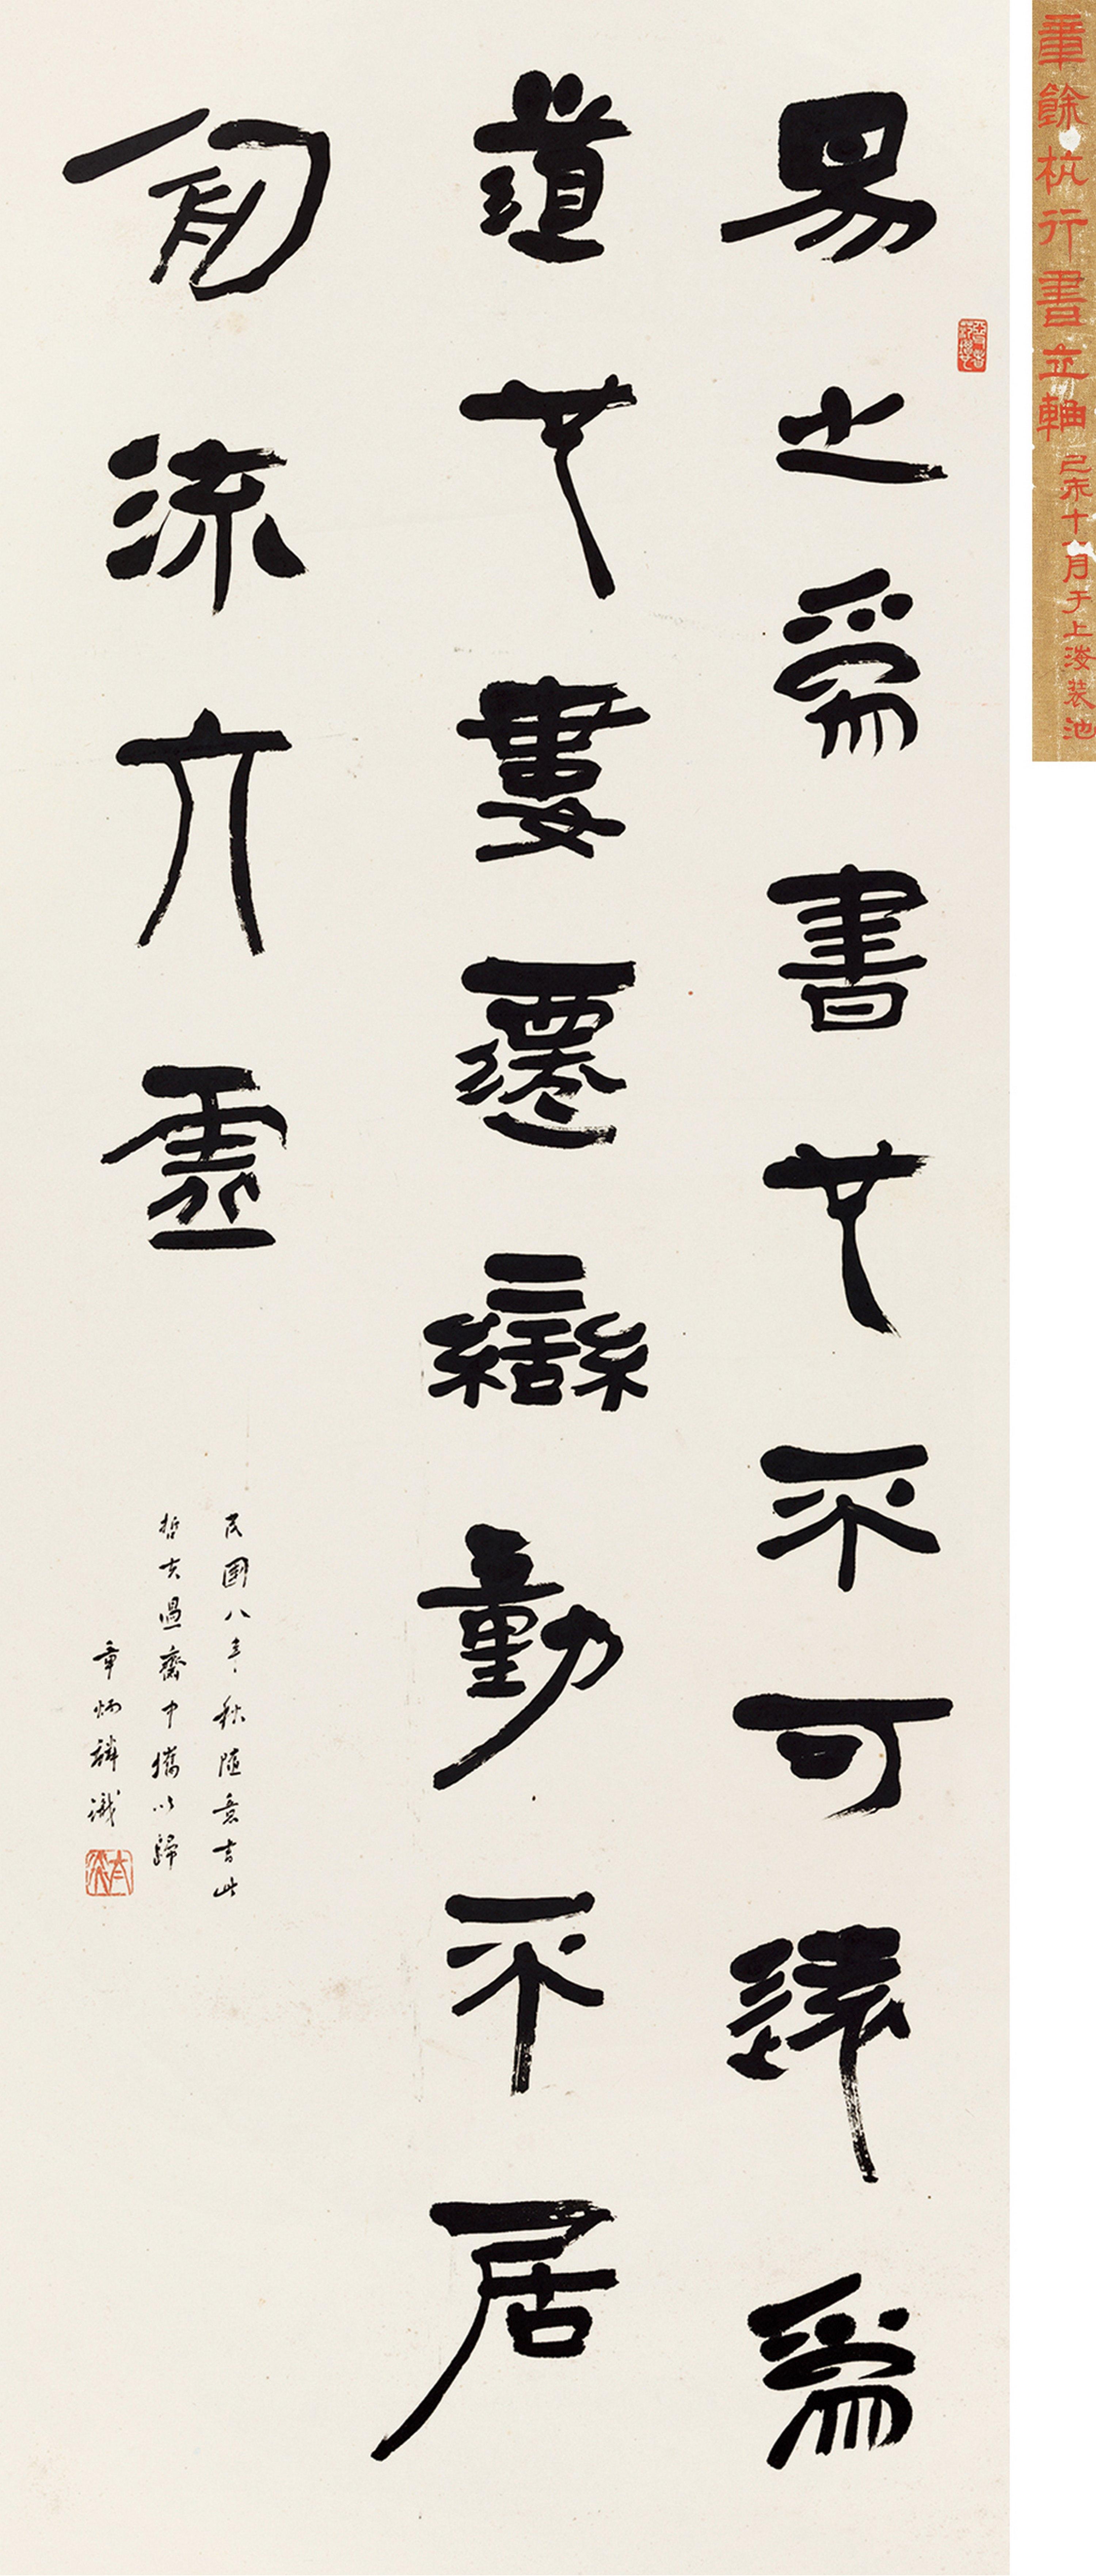 章餘杭行書立軸 己未十月于上海裝池
易之爲書也不可遠爲
道也婁遷變動不居
周流六虛
民國八年秋隨意書此
哲夫過齋中攜以歸
章炳麟識
太炎